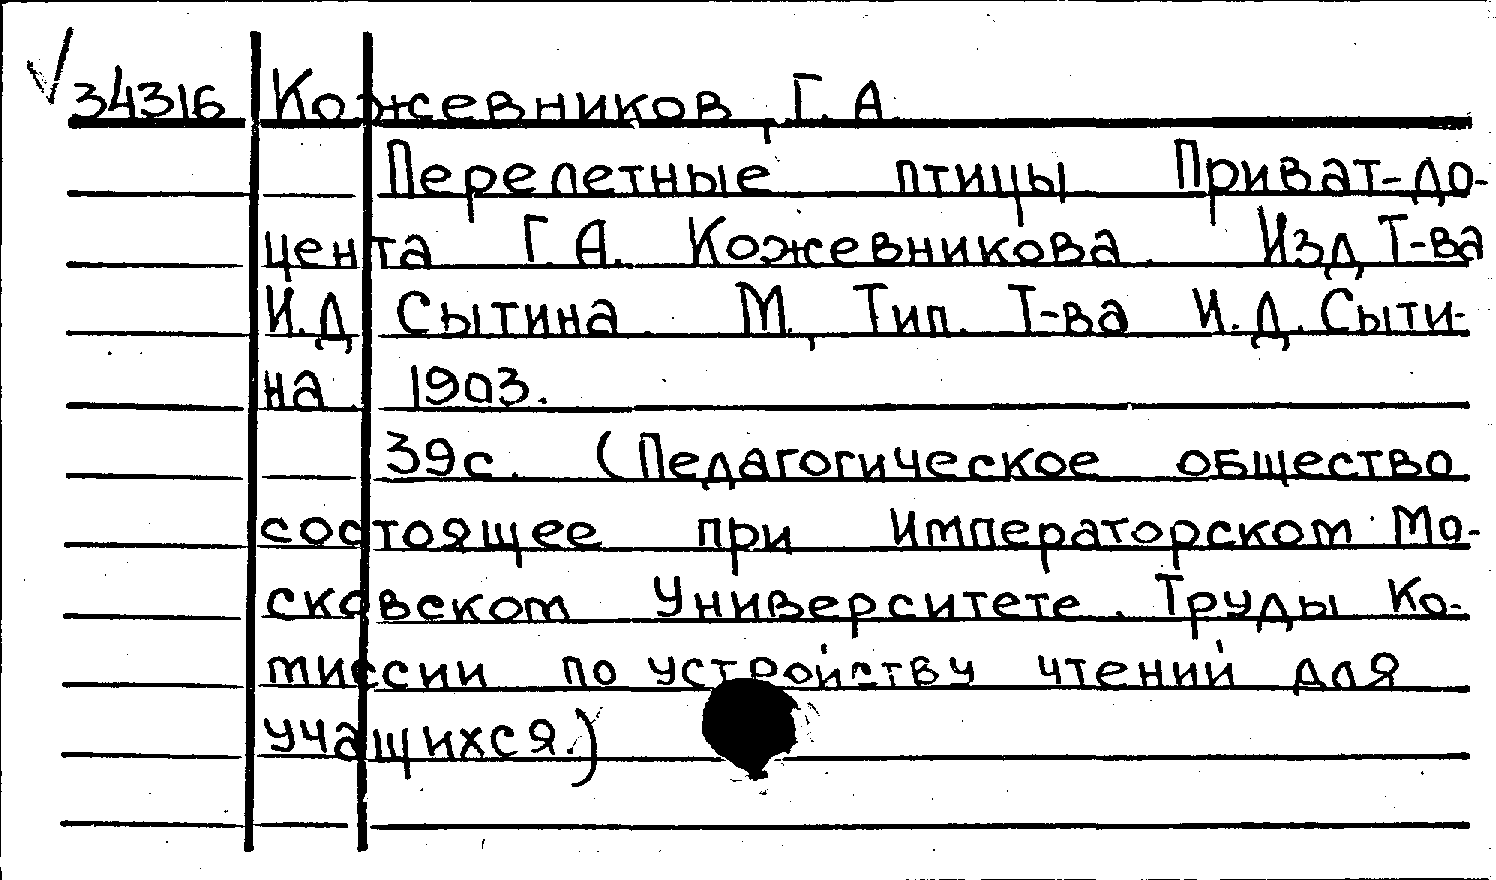 34316 Кожевников, Г. А.
Перелетные птицы Приват-до-
цента Г. А. Кожевникова. Изд Т-ва
И.Д Сытина. М., Тип. Т-ва И. Д. Сыти-
на 1903.
39с. (Педагогическое общество
состоящее при Императорском Мо-
сковском Университете. Труды Ко-
миссии по устройству чтений для
учащихся.)